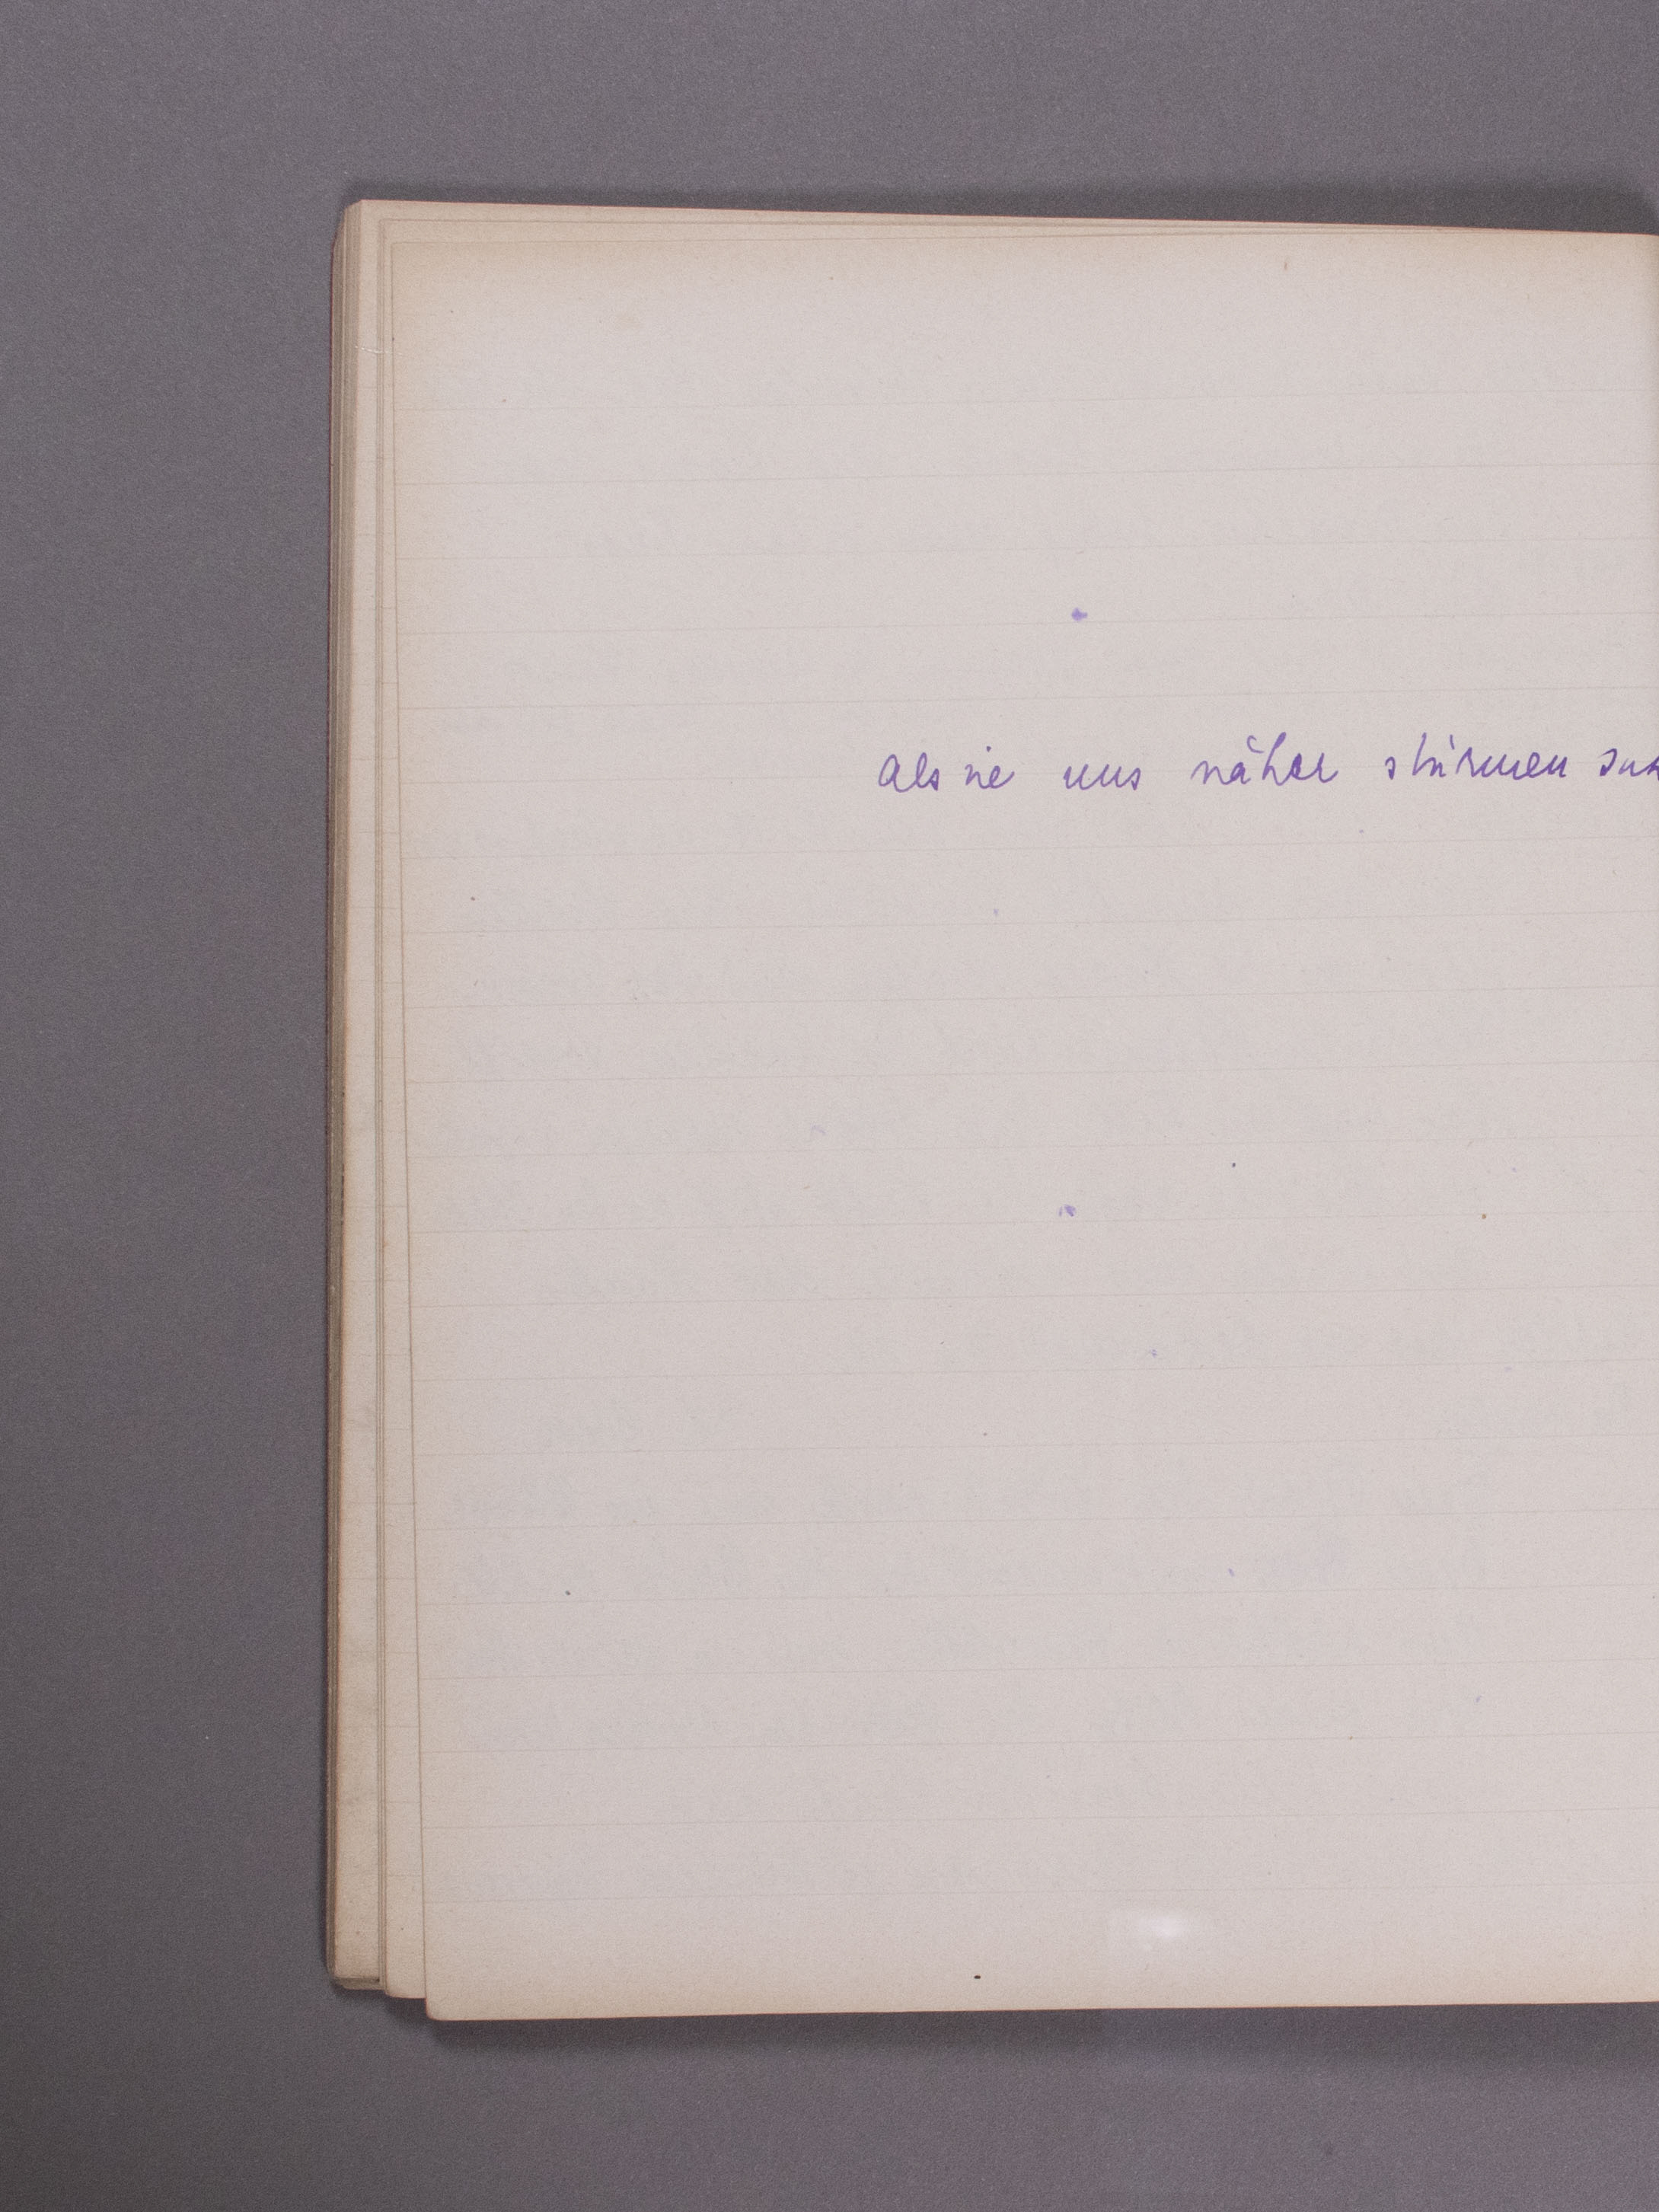 Als sie uns näher stürmen